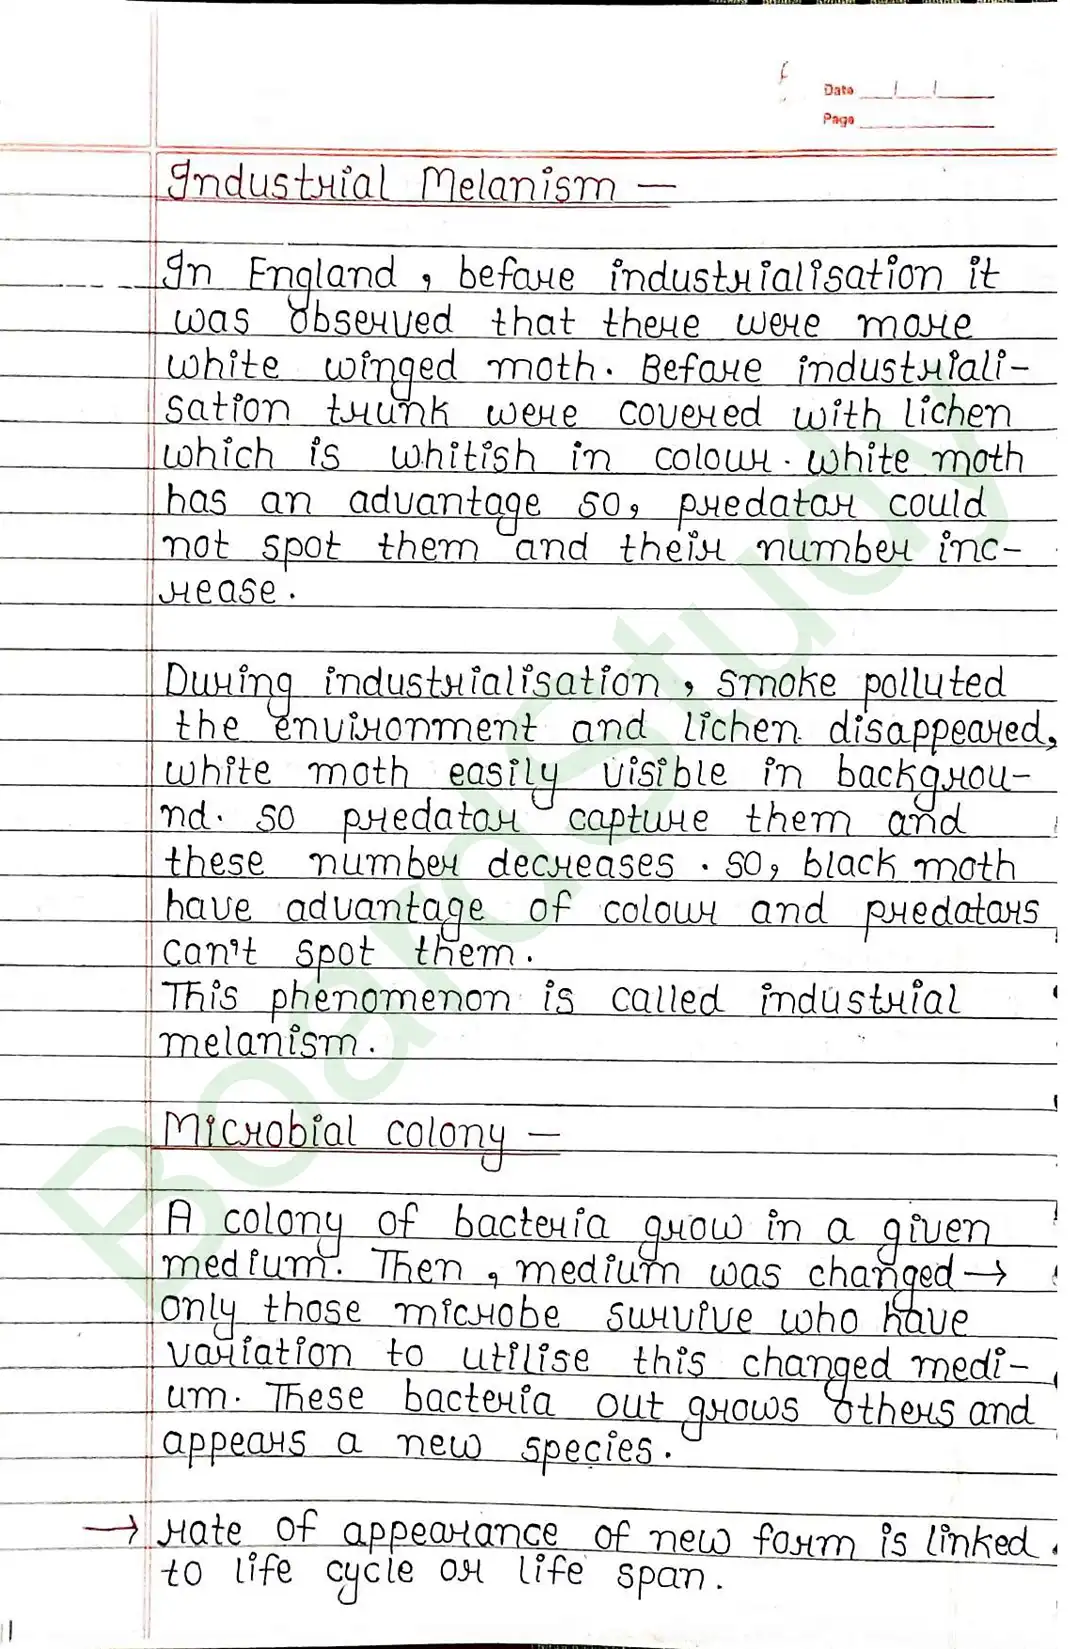 Date / /
Page
Industrial Melanism –
In England, before industrialisation it
was observed that there were more
white winged moth. Before industriali-
sation trunk were covered with lichen
which is whitish in colour. white moth
has an advantage so, predator could
not spot them and their number inc-
rease.
During industrialisation, smoke polluted
the environment and lichen disappeared,
white moth easily visible in backgrou-
nd. so predator capture them and
these number decreases. so, black moth
have advantage of colour and predators
can't spot them.
This phenomenon is called industrial
melanism.
Microbial colony –
A colony of bacteria grow in a given
medium. Then, medium was changed →
only those microbe survive who have
variation to utilise this changed medi-
um. These bacteria out grows others and
appears a new species.
→ rate of appearance of new form is linked
to life cycle or life span.
BoardStudy